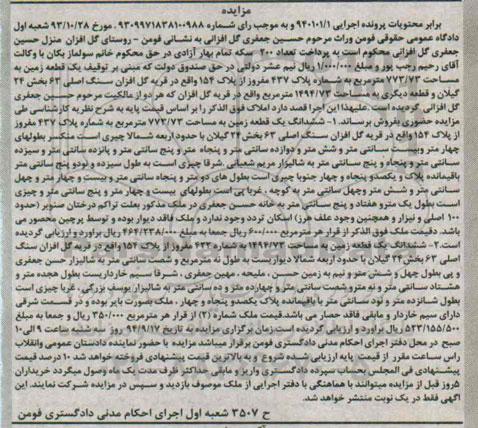 مزایده
برابر محتویات پرونده اجرایی ۹۴۰۱۰۱/۱ و به موجب رای شماره ۹۳۰۹۹۷۱۸۳۸۱۰۰۹۸۸ مورخ ۹۳/۱۰/۲۸ شعبه اول
دادگاه عمومی حقوقی فومن وراث مرحوم حسین جعفری گل افزانی به نشانی فومن - روستای گل افزان منزل حسین
جعفری گل افزانی محکوم است به پرداخت تعداد ۲۰۰ سکه تمام بهار آزادی در حق محکوم خانم سولماز بکان با وکالت
آقای رحیم رجب پور و مبلغ ۱/۰۰۰/۰۰۰ ریال نیم عشر دولتی در حق صندوق دولت که مبنی بر توقیف یک قطعه زمین به
مساحت ۷۷۳/۷۳ مترمربع به شماره پلاک ۴۳۷ مفروز از پلاک ۱۵۴ واقع در قریه گل افزان سنگ اصلی ۶۳ بخش ۲۴
گیلان و قطعه دیگری به مساحت ۱۴۹۴/۷۳ مترمربع واقع در قریه گل افزان که هر دو از مالکیت مرحوم حسین جعفری
گل افزانی گردیده است. علیهذا این اجرا قصد دارد املاک فوق الذکر را بر اساس قیمت پایه به شرح نظریه کارشناسی طی
مزایده حضوری بفروش برساند. ۱- ششدانگ یک قطعه زمین به مساحت ۷۷۳/۷۳ مترمربع به شماره پلاک ۴۳۷ مفروز
از پلاک ۱۵۴ واقع در قریه گل افزان سنگ اصلی ۶۳ بخش ۲۴ گیلان با حدود اربعه شمالا چیری است منکسر بطولهای
چهار متر وبیست سانتی متر و شش متر و دوازده سانتی متر و پنجاه متر و پنج سانتی متر و پانزده سانتی متر و سیزده
سانتی متر و پنجاه و پنج سانتی متر به شالیزار مریم شعبانی. شرقا چیزی است به طول سیزده و نودو پنج سانتی متر
باقیمانده پلاک و یکصدو پنجاه و چهار جنوبا چیزی است بطول های دو متر و پنجاه سانتی متر و بیست و چهار متر و چهل
سانتی متر و شش متر وچهل سانتی متر به کوچه، غربا پی است بطولهای بیست و چهار متر و پنج سانتی متر و چیزی
است بطول یک مترو هفتاد و پنج سانتی متر به خانه حسن جعفری در ملک مذکور بعلت تراکم درختان صنوبر (حدود
۱۰۰ اصلی و نیزار و همچنین وجود علف هرز) امکان تردد وجود ندارد و ملک فاقد دیوار بوده و توسط پرچین محصور می
باشد. دقیقت ملک فوق الذکر از قرار هر مترمربع ۶۰۰/۰۰۰ ریال به جمع مبلغ ۴۶۴/۲۳۸/۰۰۰ ریال برآورد و ارزیابی گردیده
است. ۲- ششدانگ یک قطعه زمین به مساحت ۱۴۹۴/۷۳ مترمربع به شماره ۴۳۲ مفروز از پلاک ۱۵۴ واقع در قریه گل افزان سنگ
اصلی ۶۳ بخش ۲۴ گیلان با حدود اربعه شمالا دیواریست به طول نه مترمربع و شصت سانتی متر به شالیزار حسن جعفری
و پی بطول چهل و شش متر و نیم به زمین حسن، ملیحه، مهین جعفری، شرقا سیم خارداریست بطول هجده متر و
هشتاد سانتی متر و نه متروشصت سانتی متر و چهارده متر و ده سانتی متر به شالیزار یوسف بزرگی، غربا چیزی است
بطول شانزده متر و نود سانتی متر با باقیمانده پلاک یکصدو پنجاه و چهار. ملک بصورت بایر بوده و در قسمت شرقی
دارای سیم خاردار و مابقی فاقد حصار می باشد. قیمت ملک شماره (۲) از قرار هر مترمربع ۳۵۰/۰۰۰ ریال و جمعا به مبلغ
۵۲۳/۱۵۵/۵۰۰ ریال برآورد و ارزیابی گردیده است. زمان برگزاری مزایده به تاریخ ۹۴/۹/۱۷ روز سه شنبه ساعت ۹ الی ۱۰
صبح در محل دفتر اجرای احکام مدنی دادگستری فومن برقرار میباشد مزایده با حضور نماینده دادستان عمومی وانقلاب
راس ساعت مقرر از قیمت پایه ارزیابی شده شروع و به بالاترین قیمت پیشنهادی فروخته خواهد شد ۱۰ درصد قیمت
پیشنهادی فی المجلس بحساب سپرده دادگستری واریز و مابقی حداکثر ظرف مدت یک ماه وصول میگردد خریداران
۵روز قبل از مزایده میتوانند با هماهنگی با دفتر اجرایی از ملک موصوف بازدید و سپس در مزایده شرکت نمایند. این
آگهی فقط در یک نوبت منتشر خواهد شد.
ح ۳۵۰۷ شعبه اول اجرای احکام مدنی دادگستری فومن